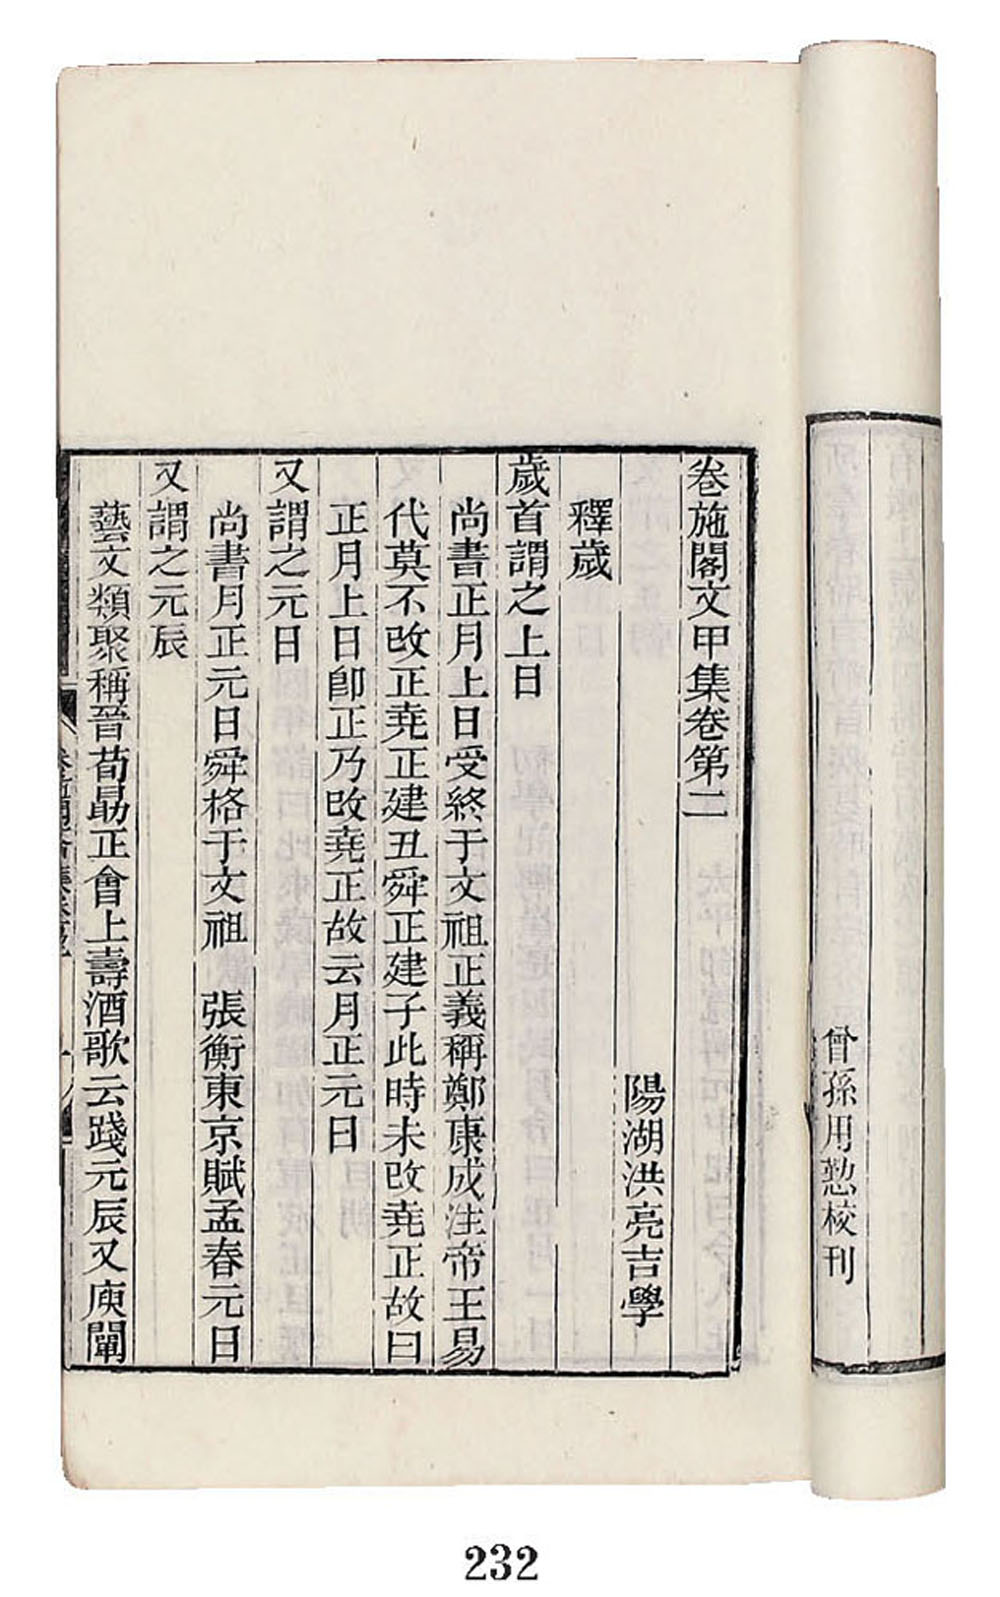 曾孫用懃校刊
卷施閣文甲集卷第二
陽湖洪亮吉學
釋歲
歲首謂之上日
尚書正月上日受終于文祖正義稱鄭康成注帝王易
代莫不改正堯正建丑舜正建子此時未改堯正故曰
正月上日卽正乃改堯正故云月正元日
又謂之元日
尚書月正元日舜格于文祖 張衡東京賦孟春元日
又謂之元辰
藝文類聚稱晉荀勗正會上壽酒歌云踐元辰又庾闡
232